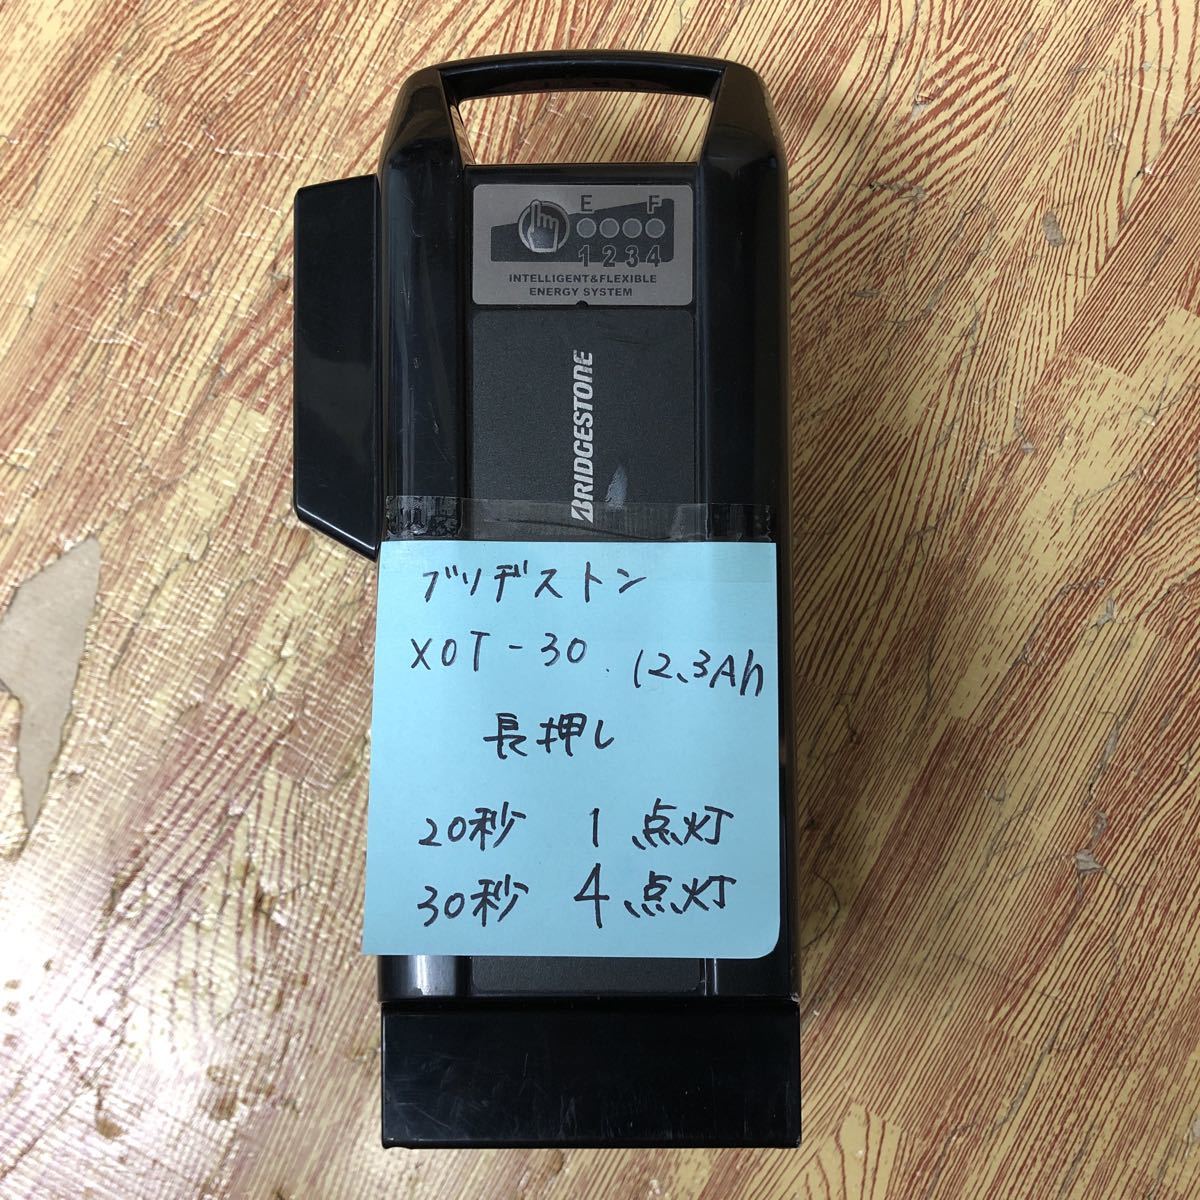 E F
1 2 3 4
INTELLIGENT&FLEXIBLE
ENERGY SYSTEM
BRIDGESTONE
ブリヂストン
X0T-30 12.3Ah
長押し
20秒 1点灯
30秒 4点灯